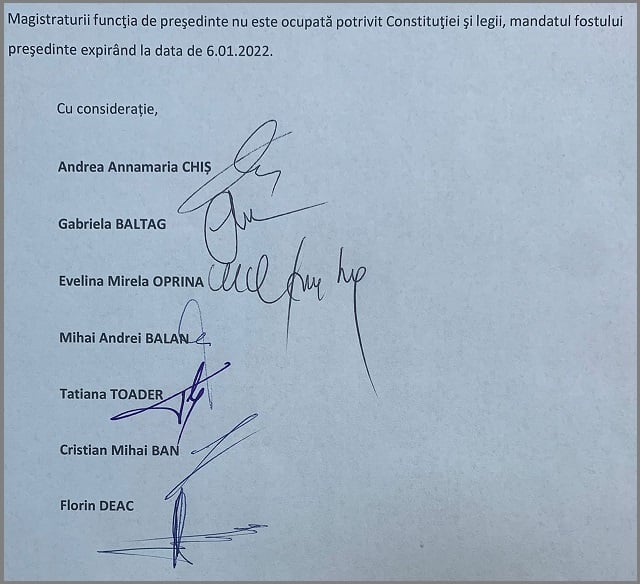 Magistraturii funcţia de preşedinte nu este ocupată potrivit Constituţiei şi legii, mandatul fostului
preşedinte expirând la data de 6.01.2022.
Cu consideraţie,
Andrea Annamaria CHIŞ
Gabriela BALTAG
Evelina Mirela OPRINA
Mihai Andrei BALAN
Tatiana TOADER
Cristian Mihai BAN
Florin DEAC